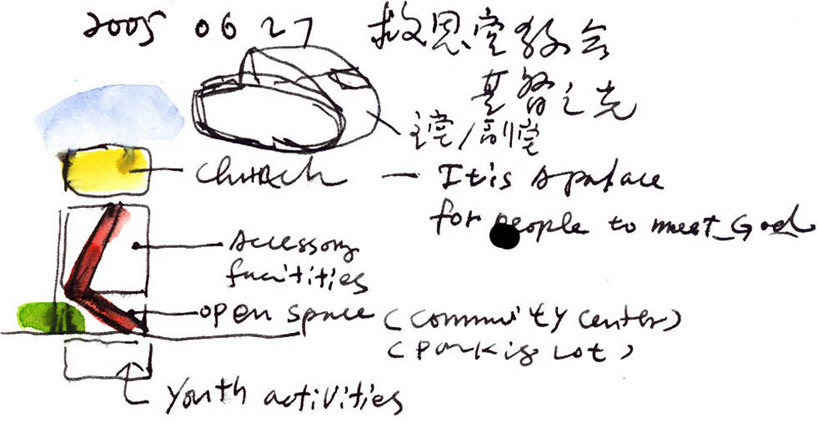 2005 06 27 救恩堂教会
基督之光
主堂/副堂
church — It is A palace
for people to meet God
Accessory
facitities
open space (community center)
(Parkig Lot)
Youth activities